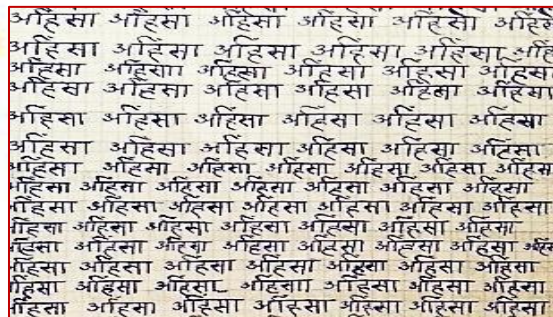 अहिंसा अहिंसा अहिंसा अहिंसा अहिंसा
अहिंसा अहिंसा अहिंसा अहिंसा अहिंसा
अहिंसा अहिंसा अहिंसा अहिंसा अहिंसा अहिंसा
अहिंसा अहिंसा अहिंसा अहिंसा अहिंसा अहिंसा
अहिंसा अहिंसा अहिंसा अहिंसा अहिंसा अहिंसा
अहिंसा अहिंसा अहिंसा अहिंसा अहिंसा अहिंसा
अहिंसा अहिंसा अहिंसा अहिंसा अहिंसा अहिंसा
अहिंसा अहिंसा अहिंसा अहिंसा अहिंसा अहिंसा अहिंसा
अहिंसा अहिंसा अहिंसा अहिंसा अहिंसा अहिंसा अहिंसा
अहिंसा अहिंसा अहिंसा अहिंसा अहिंसा अहिंसा अहिंसा
अहिंसा अहिंसा अहिंसा अहिंसा अहिंसा अहिंसा अहिंसा
अहिंसा अहिंसा अहिंसा अहिंसा अहिंसा अहिंसा अहिंसा
अहिंसा अहिंसा अहिंसा अहिंसा अहिंसा अहिंसा अहिंसा
अहिंसा अहिंसा अहिंसा अहिंसा अहिंसा अहिंसा अहिंसा